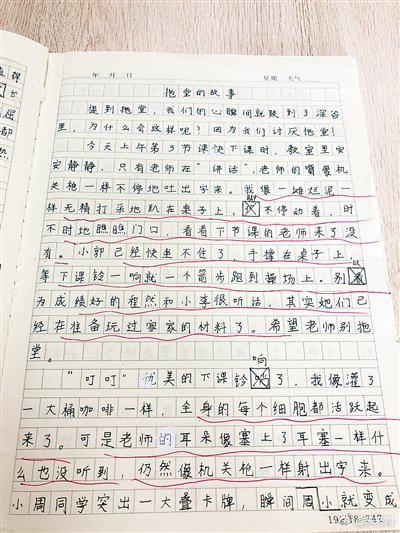 年 月 日 星期 天气
拖堂的故事
提到拖堂,我们的心瞬间就跌到了深谷
里,为什么会这样呢?因为我们讨厌拖堂!
今天上午第3节课快下课时,教室里安
安静静,只有老师在"讲话",老师的嘴像机
关枪一样不停地吐出字来。我像一摊烂泥一
样无精打采地趴在桌子上,不停动着,时
不时地瞧瞧门口,看看下节课的老师来了没
有。小郭已经快坐不住了,手撑在桌子上,
等下课铃一响就一个箭步跑到操场上。别以
为成绩好的程然和小李很听话,其实她们已
经在准备玩过家家的材料了。希望老师别拖
堂。
响
"叮叮"优美的下课铃了,我像灌了
一大桶咖啡一样,全身的每个细胞都活跃起
来了。可是老师的耳朵像塞上了耳塞一样什
么也没听到,仍然像机关枪一样射出字来。
小周同学突出一大叠卡牌,瞬间周小就变成